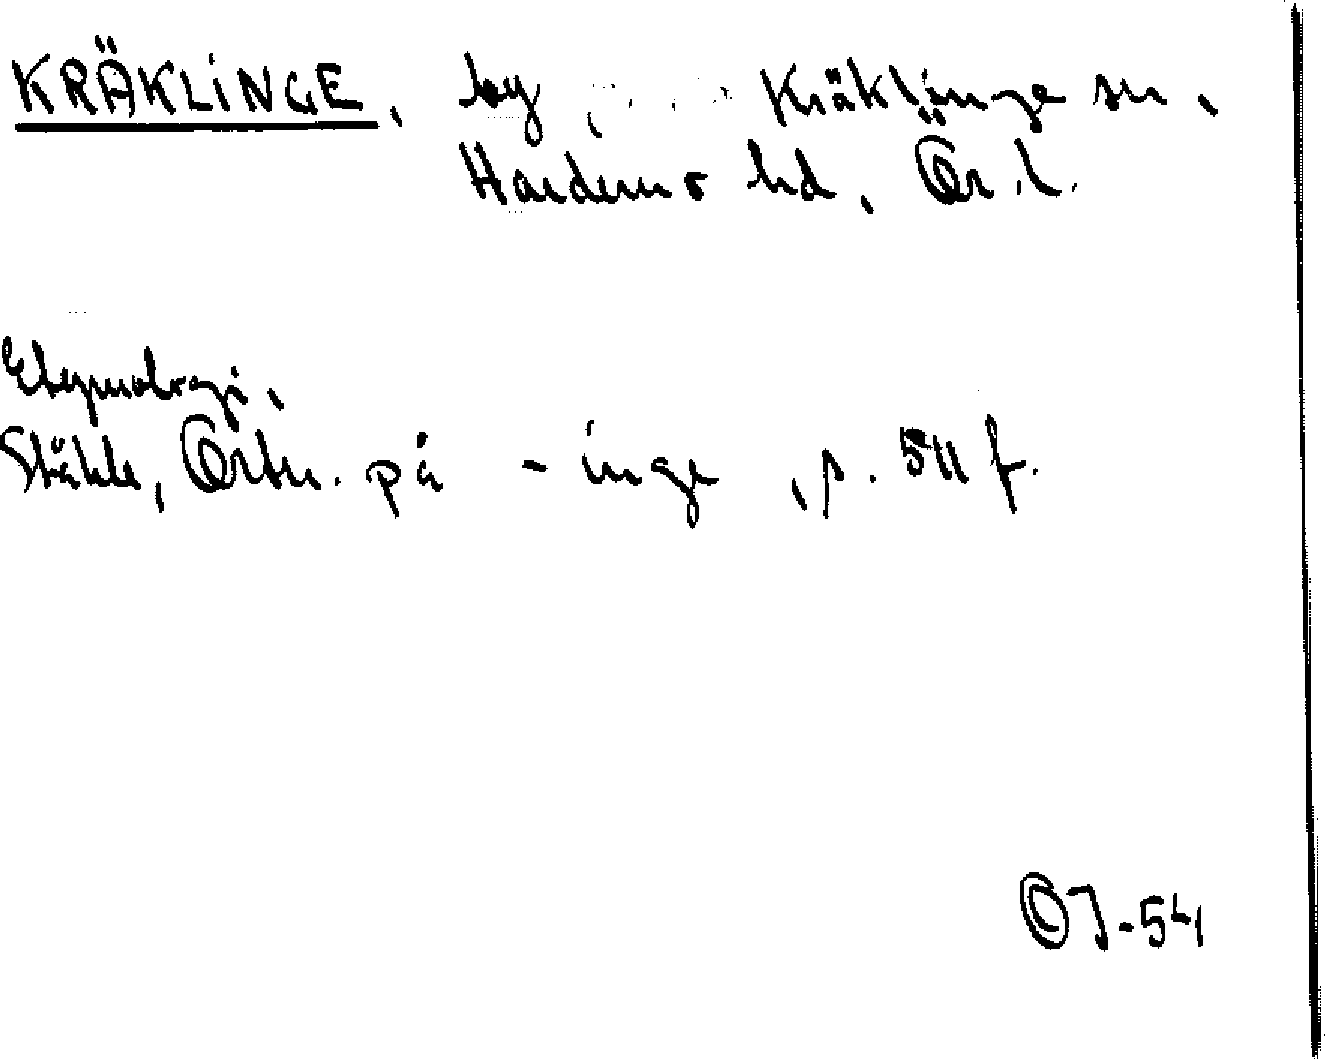 KRÄKLINGE, by, Kräklinge sn,
Hardemo hd, Ör.l.
Etymologi,
Ståhle, Ortn. på -inge, s. 511 f.
OJ-54